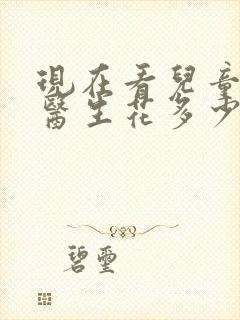 現在看兒童
醫生花多少
碧璽